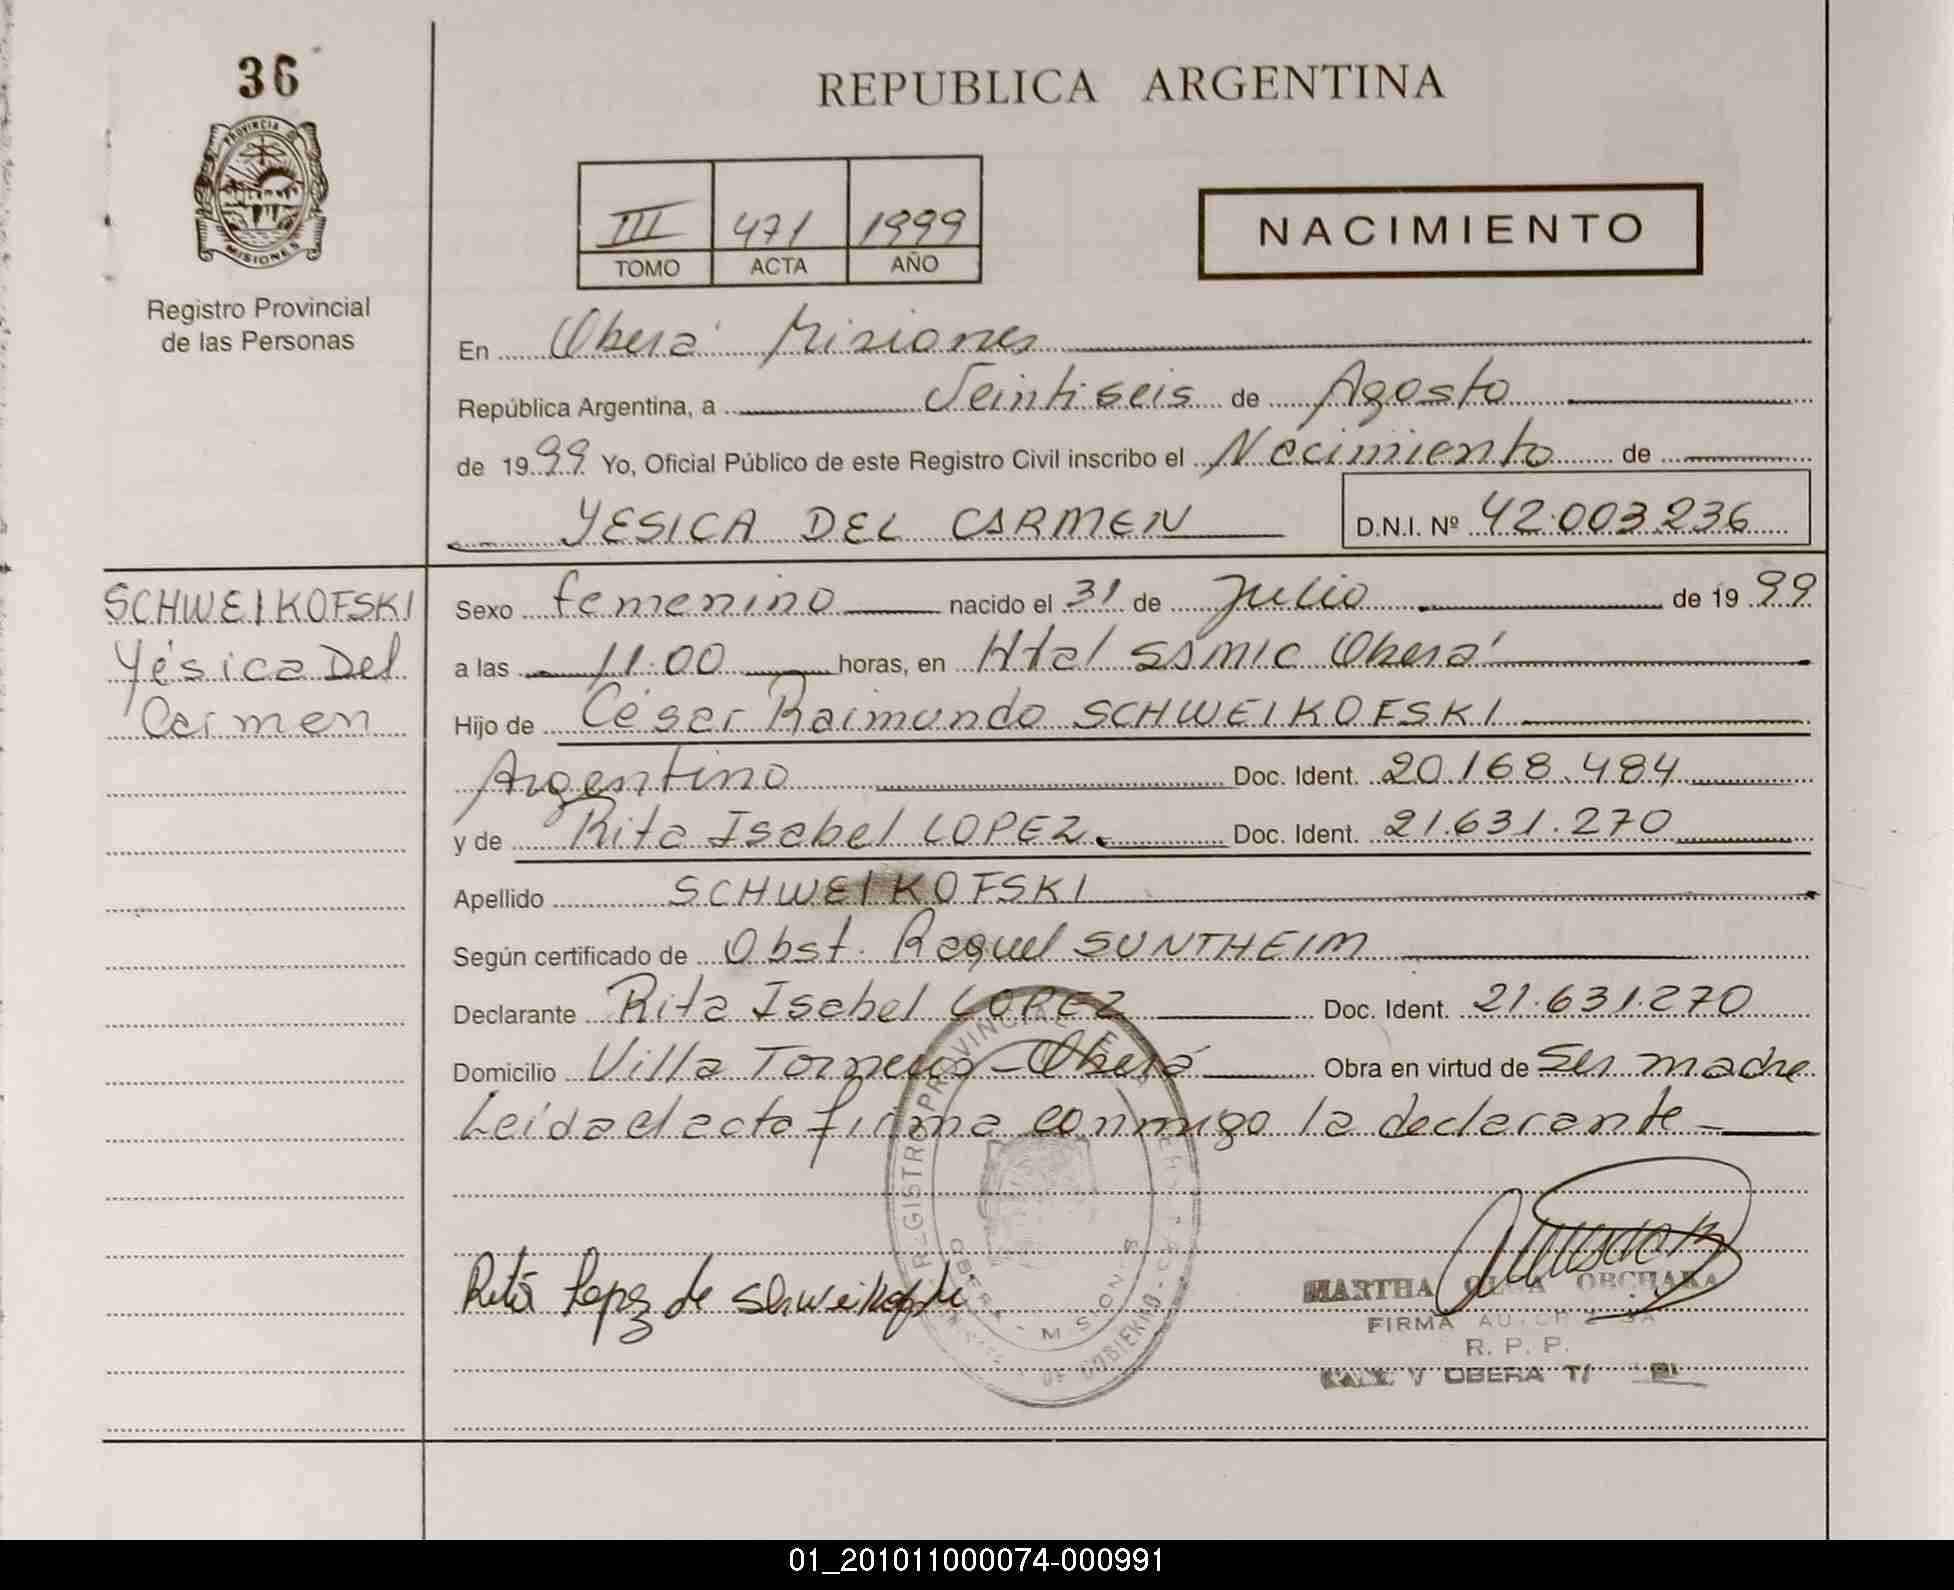 36
PROVINCIA
MISIONES
Registro Provincial
de las Personas
REPUBLICA ARGENTINA
III 471 1999
TOMO ACTA AÑO
NACIMIENTO
En Oberá Misiones
República Argentina, a Veintiseis de Agosto
de 1999 Yo, Oficial Público de este Registro Civil inscribo el Nacimiento de
YESICA DEL CARMEN D.N.I. Nº 42.003.236
SCHWEIKOFSKI
Yésica Del
Carmen
Sexo femenino nacido el 31 de Julio de 1999
a las 11.00 horas, en Htal SAMIC Oberá
Hijo de César Raimundo SCHWEIKOFSKI
Argentino Doc. Ident. 20.168.484
y de Rita Isabel LOPEZ. Doc. Ident. 21.631.270
Apellido SCHWEIKOFSKI
Según certificado de Obst. Raquel SUNTHEIM
Declarante Rita Isabel LOPEZ Doc. Ident. 21.631.270
Domicilio Villa Torneus - Oberá Obra en virtud de Ser madre
Leída el acta firma conmigo la declarante
REGISTRO PROVINCIAL DE
OBERA - MISIONES
GOBIERNO
Rita Lopez de Schweikofski
MARTHA OLGA OBCHAKA
FIRMA AUTORIZADA
R. P. P.
OBERA
01_201011000074-000991